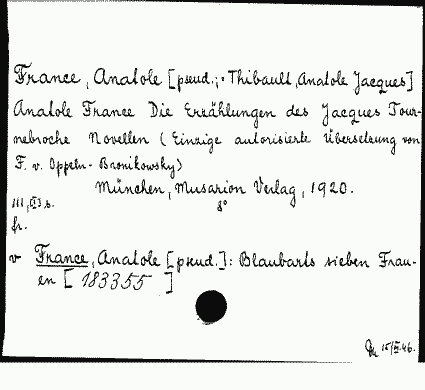 France, Anatole [pseud.; Thibault, Anatole Jacques]
Anatole France Die Erzählungen des Jacques Tour-
nebroche Novellen (Einzige autorisierte Übersetzung von
F. v. Oppeln-Bronikowsky)
München, Musarion Verlag, 1920.
8°
fr.
v France, Anatole [pseud.]: Blaubarts sieben Frau-
en [183355]
15/III.46.